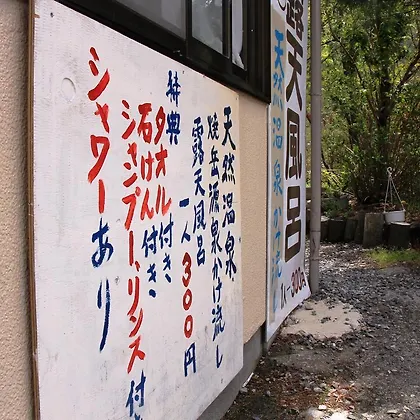 天然温泉
焼岳源泉かけ流し
露天風呂
一人300円
特典
タオル付き
石けん付き
シャンプー、リンス付
シャワーあり
露天風呂
天然温泉かけ流し